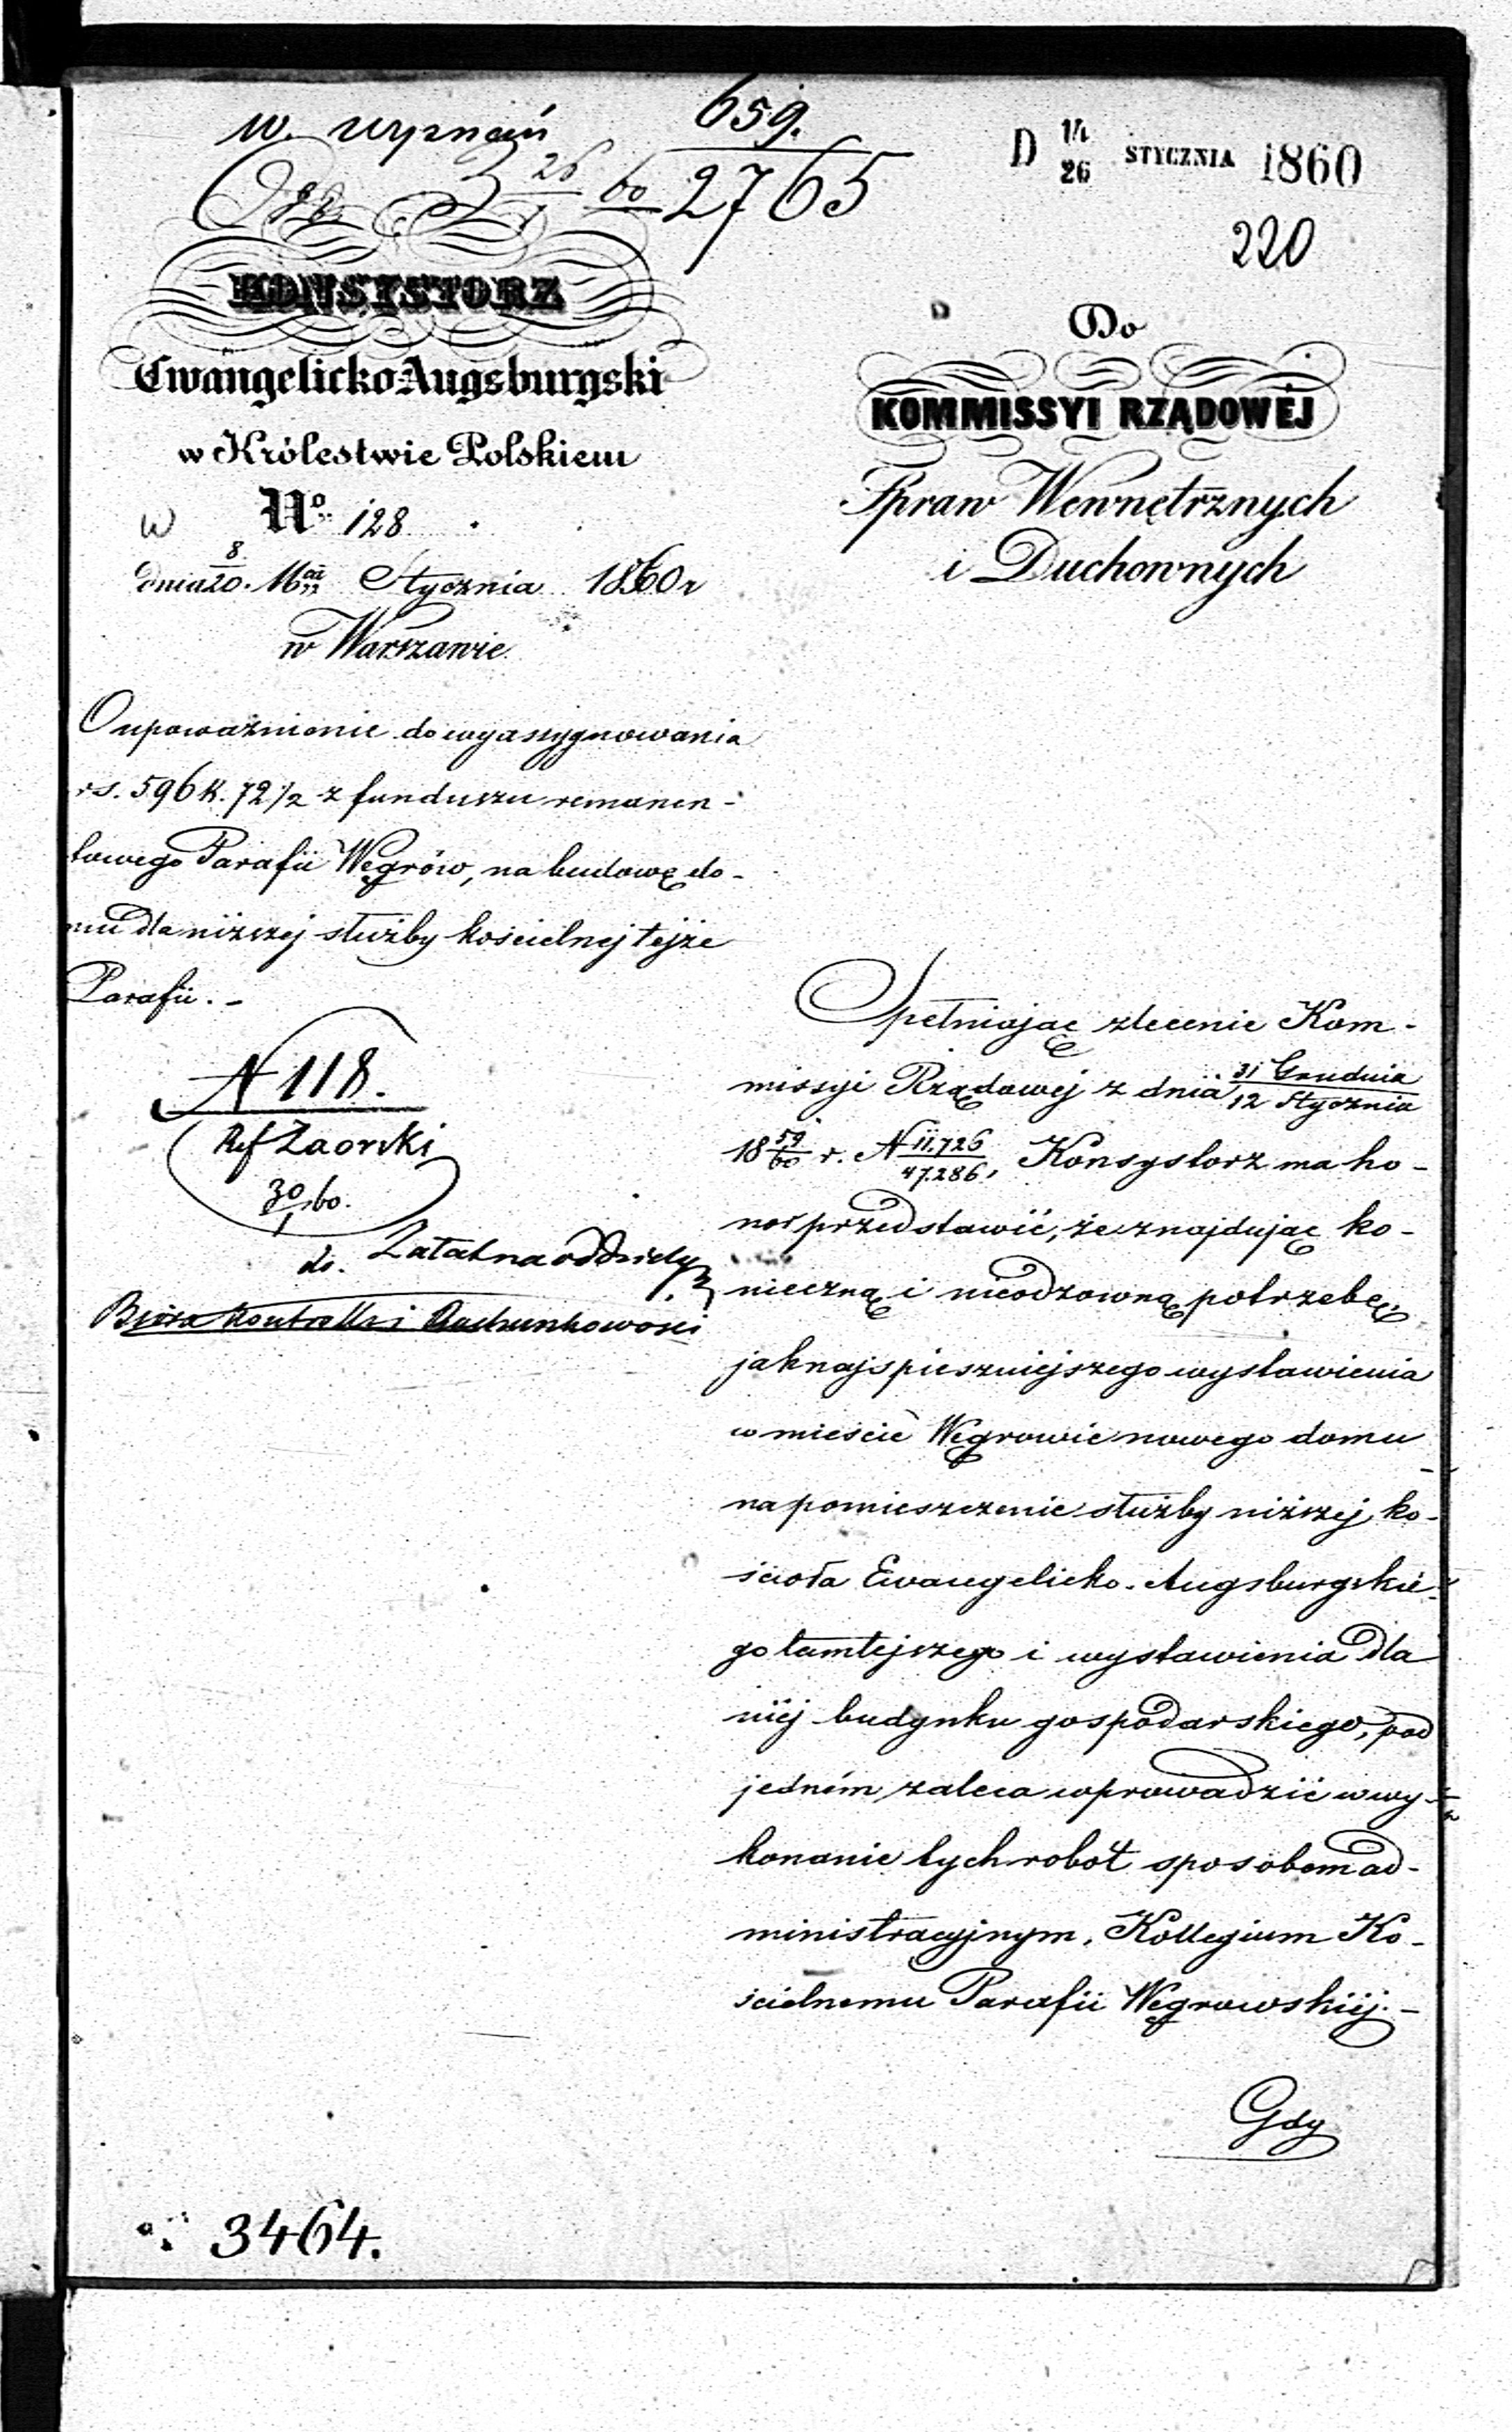 659.
2765
26/1 60
D 14/26 STYCZNIA 1860
220
KONSYSTORZ
Ewangelicko-Augsburgski
w Królestwie Polskiem
W No 128
dnia 8/20 Mca Stycznia 1860 r
w Warszawie
Do
KOMMISSYI RZĄDOWÉJ
Spraw Wewnętrznych
i Duchownych
O upoważnienie do wyassygnowania
rs. 596 k. 72 1/2 z funduszu remanen-
towego Parafii Węgrów, na budowę do-
mu dla niższej służby kościelnej tejże
Parafii. -
N 118.
Ref Zaorski
30/1 60.
do.
Biura Kontrolli i Rachunkowości
Spełniając zlecenie Kom-
missyi Rządowej z dnia 31 Grudnia/12 Stycznia
18 59/60 r. N 11.726/47.286, Konsystorz ma ho-
nor przedstawić, że znajdując ko-
nieczną i nieodzowną potrzebę,
jaknajspieszniejszego wystawienia
w mieście Węgrowie nowego domu
na pomieszczenie służby niższej ko-
ścioła Ewangelicko-Augsburgskie-
go tamtejszego i wystawienia dla
niej budynku gospodarskiego, pod
jedném zaleca wprowadzić w wy-
konanie tych robot sposobem ad-
ministracyjnym, Kollegium Ko-
ścielnemu Parafii Węgrowskiéj. -
Gdy
3464.